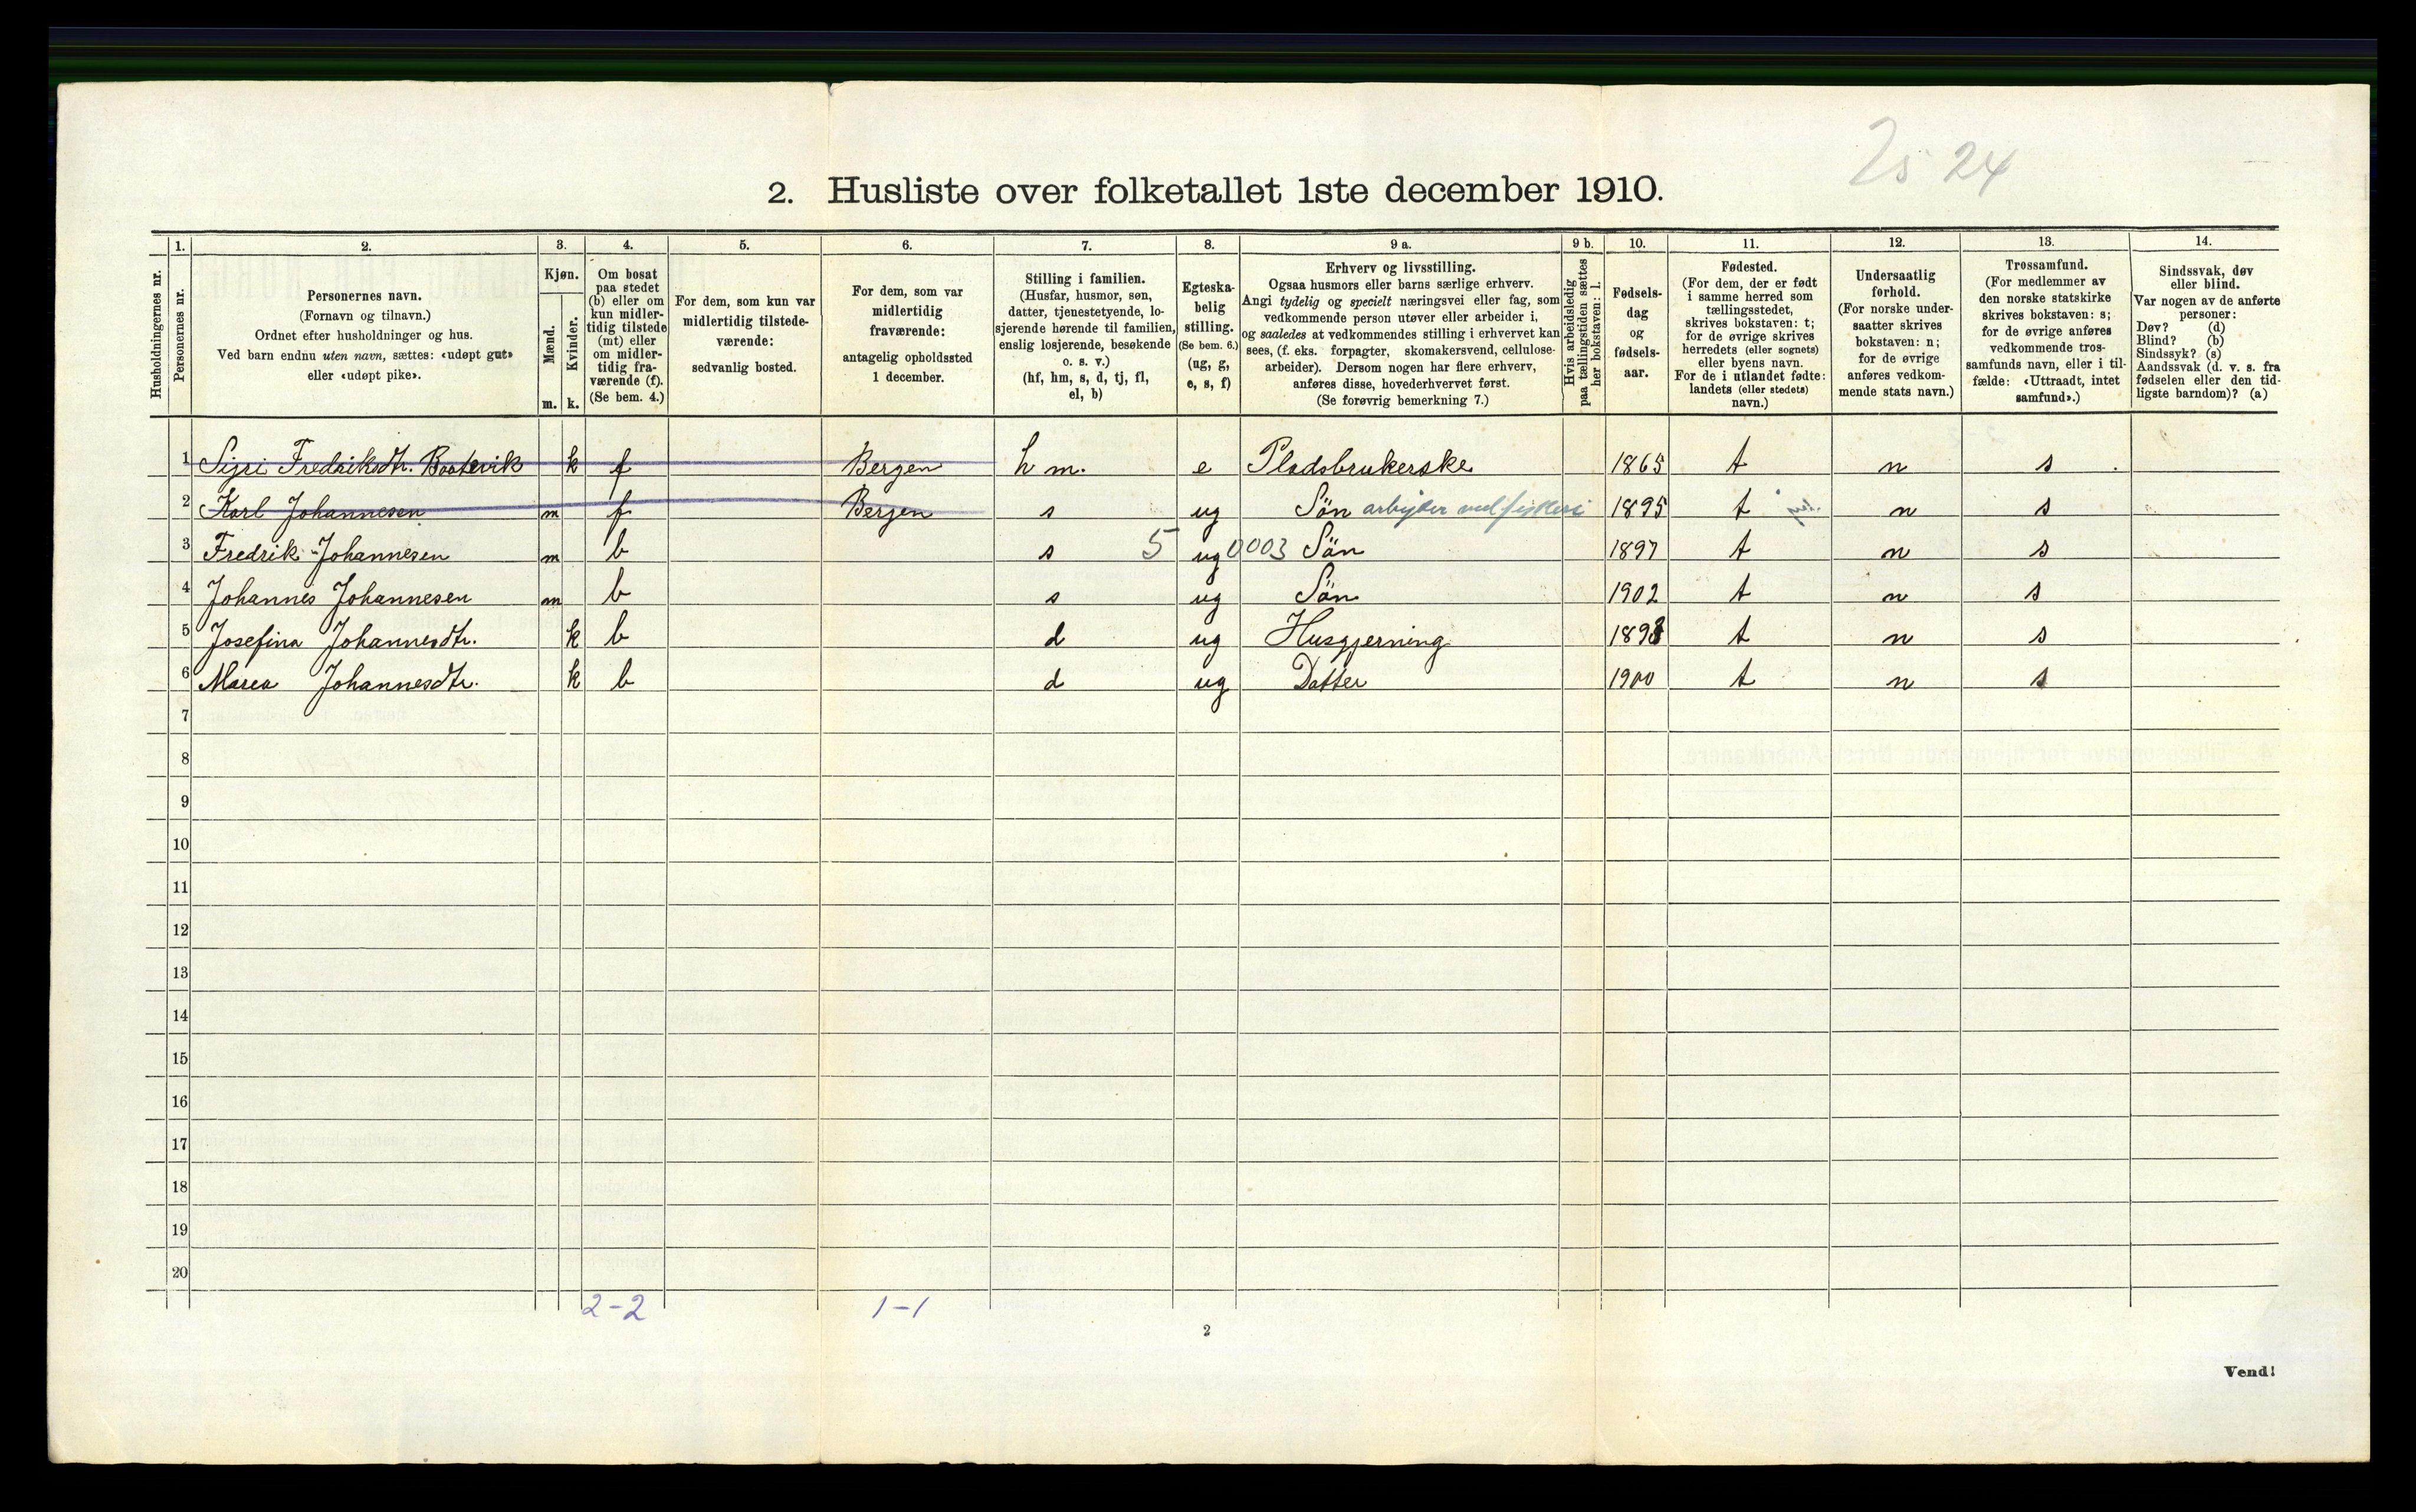 25 24
2. Husliste over folketallet 1ste december 1910.
Husholdningernes nr.
1. Personernes nr.
2. Personernes navn.
(Fornavn og tilnavn.)
Ordnet efter husholdninger og hus.
Ved barn endnu uten navn, sættes: «udøpt gut»
eller «udøpt pike».
3. Kjøn.
Mænd. m.
Kvinder. k.
4. Om bosat
paa stedet
(b) eller om
kun midler-
tidig tilstede
(mt) eller
om midler-
tidig fra-
værende (f).
(Se bem. 4.)
5. For dem, som kun var
midlertidig tilstede-
værende:
sedvanlig bosted.
6. For dem, som var
midlertidig
fraværende:
antagelig opholdssted
1 december.
7. Stilling i familien.
(Husfar, husmor, søn,
datter, tjenestetyende, lo-
sjerende hørende til familien,
enslig losjerende, besøkende
o. s. v.)
(hf, hm, s, d, tj, fl,
el, b)
8. Egteska-
belig
stilling.
(Se bem. 6.)
(ug, g,
e, s, f)
9 a. Erhverv og livsstilling.
Ogsaa husmors eller barns særlige erhverv.
Angi tydelig og specielt næringsvei eller fag, som
vedkommende person utøver eller arbeider i,
og saaledes at vedkommendes stilling i erhvervet kan
sees, (f. eks. forpagter, skomakersvend, cellulose-
arbeider). Dersom nogen har flere erhverv,
anføres disse, hovederhvervet først.
(Se forøvrig bemerkning 7.)
9 b. Hvis arbeidsledig
paa tællingstiden sættes
her bokstaven: l.
10. Fødsels-
dag
og
fødsels-
aar.
11. Fødested.
(For dem, der er født
i samme herred som
tællingsstedet,
skrives bokstaven: t;
for de øvrige skrives
herredets (eller sognets)
eller byens navn.
For de i utlandet fødte:
landets (eller stedets)
navn.)
12. Undersaatlig
forhold.
(For norske under-
saatter skrives
bokstaven: n;
for de øvrige
anføres vedkom-
mende stats navn.)
13. Trossamfund.
(For medlemmer av
den norske statskirke
skrives bokstaven: s;
for de øvrige anføres
vedkommende tros-
samfunds navn, eller i til-
fælde: «Uttraadt, intet
samfund».)
14. Sindssvak, døv
eller blind.
Var nogen av de anførte
personer:
Døv? (d)
Blind? (b)
Sindssyk? (s)
Aandssvak (d. v. s. fra
fødselen eller den tid-
ligste barndom)? (a)
1 Sigri Fredriksdtr. Bootevik k f Bergen hm. e Pladsbrukerske 1865 t n s
2 Karl Johannesen m f Bergen s ug Sön arbyder ved fiskeri 1895 t n s
3 Fredrik Johannesen m b s 5 ug 0003 Sön 1897 t n s
4 Johannes Johannesen m b s ug Sön 1902 t n s
5 Josefina Johannesdtr. k b d ug Husgjerning 1893 t n s
6 Marea Johannesdtr. k b d ug Datter 1900 t n s
7
8
9
10
11
12
13
14
15
16
17
18
19
20
2-2 1-1
2
Vend!